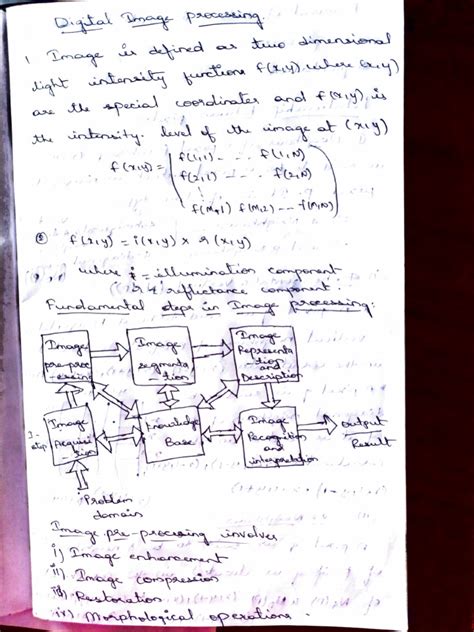 Digital Image processing.
1. Image is defined as two dimensional
light intensity function f(x,y) where (x,y)
are the special coordinates and f(x,y) is
the intensity level of the image at (x,y)
f(x,y) = f(1,1) - - - . f(1,N)
f(2,1) - - - . f(2,N)
f(M,1) f(M,2) - - - f(M,N)
② f(x,y) = i(x,y) x r(x,y)
where i = illumination component
r = reflistance component.
Fundamental steps in Image processing:
Image
pre-proc
-essing
Image
segmenta
-tion
Image
Representa
-tion
and
Description
Image
Acquisi
-tion
Knowledge
Base
Image
Recognition
and
interpretation
output
Result
Problem
domain
Image pre-processing involves
i) Image enhancement
ii) Image compression
iii) Restoration
iv) Morphological operations.